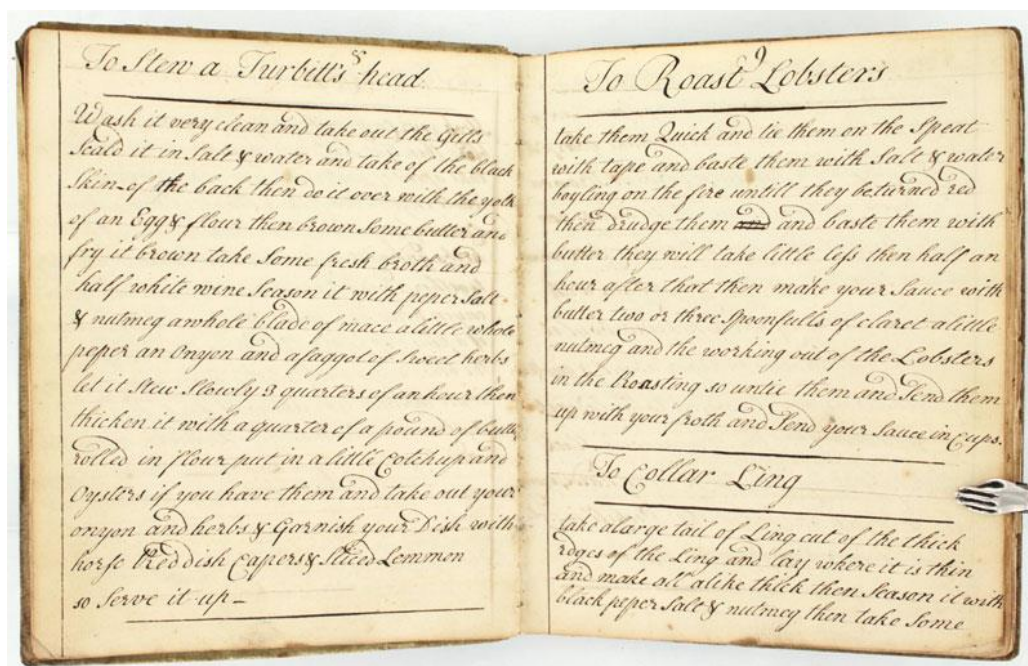 8
To Stew a Turbitt's head
Wash it very clean and take out the Gills
Scald it in Salt & water and take of the black
Skin of the back then do it over with the yolk
of an Egg & flour then brown Some butter and
fry it brown take Some fresh broth and
half white wine Season it with peper Salt
& nutmeg a whole blade of mace a little whole
peper an Onyon and a faggot of Sweet herbs
let it Stew Slowly 3 quarters of an hour then
thicken it with a quarter of a pound of butter
rolled in flour put in a little Cotchup and
Oysters if you have them and take out your
onyon and herbs & Garnish your Dish with
horse Reddish Capers & Sliced Lemmon
so Serve it up
9
To Roast Lobsters
take them Quick and tie them on the Speat
with tape and baste them with Salt & water
boyling on the fire untill they be turned red
then drudge them and and baste them with
butter they will take little less then half an
hour after that then make your Sauce with
butter two or three Spoonfulls of claret a little
nutmeg and the working out of the Lobsters
in the Roasting so untie them and Send them
up with your froth and Send your Sauce in Cups.
To Collar Ling
take a large tail of Ling cut of the thick
edges of the Ling and lay where it is thin
and make all alike thick then Season it with
black peper Salt & nutmeg then take Some